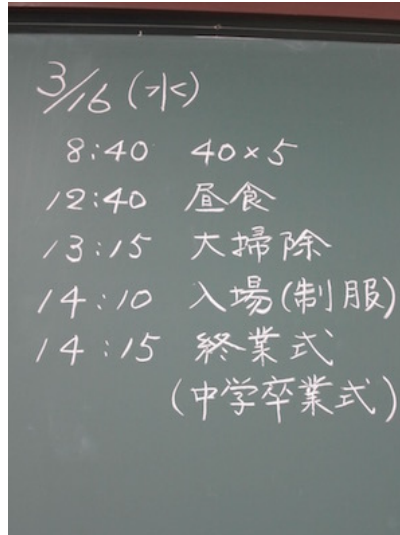 3/16 (水)
8:40 40×5
12:40 昼食
13:15 大掃除
14:10 入場(制服)
14:15 終業式
(中学卒業式)